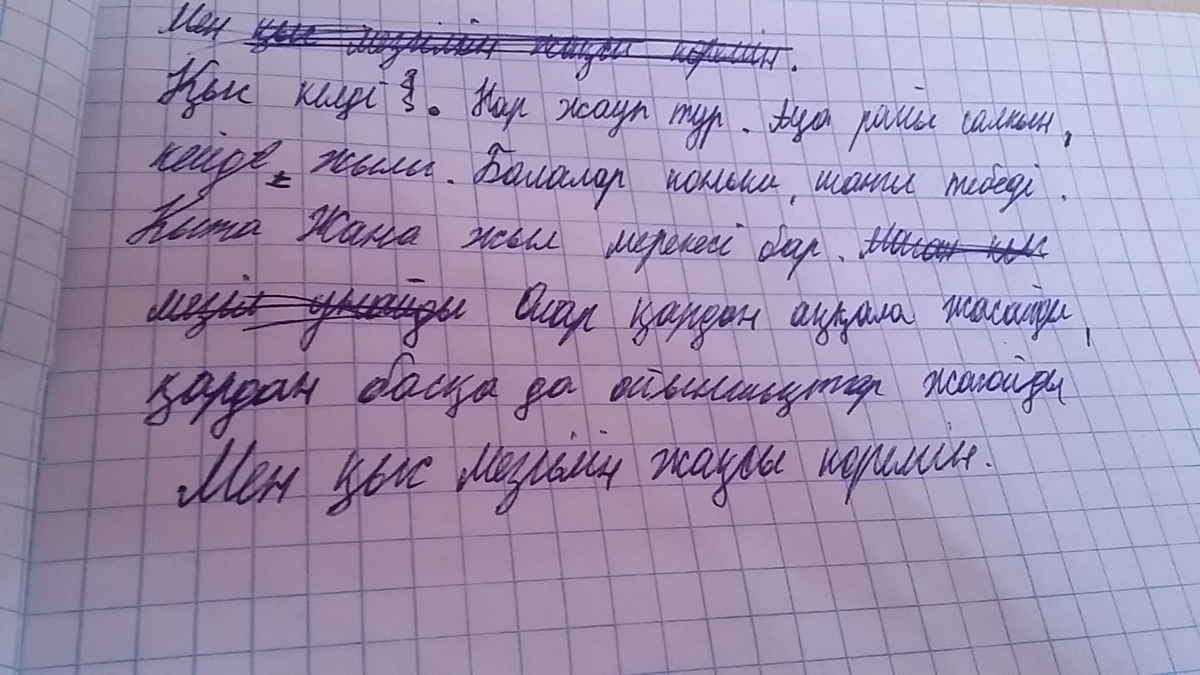 Мен қыс мезгілін жақсы көремін.
Қыс келді. Нар жауп тур. Ауа райы салкын,
кейде жылы. Балалар коньки, шаңғы тебеді.
Кыта Жана жыл мерекесі бар. Маған қыс
мезгіл ұнайды Олар қардан аққала жасайды,
қардан басқа да ойыншықтар жасайды
Мен қыс мезгілін жақсы коремін.